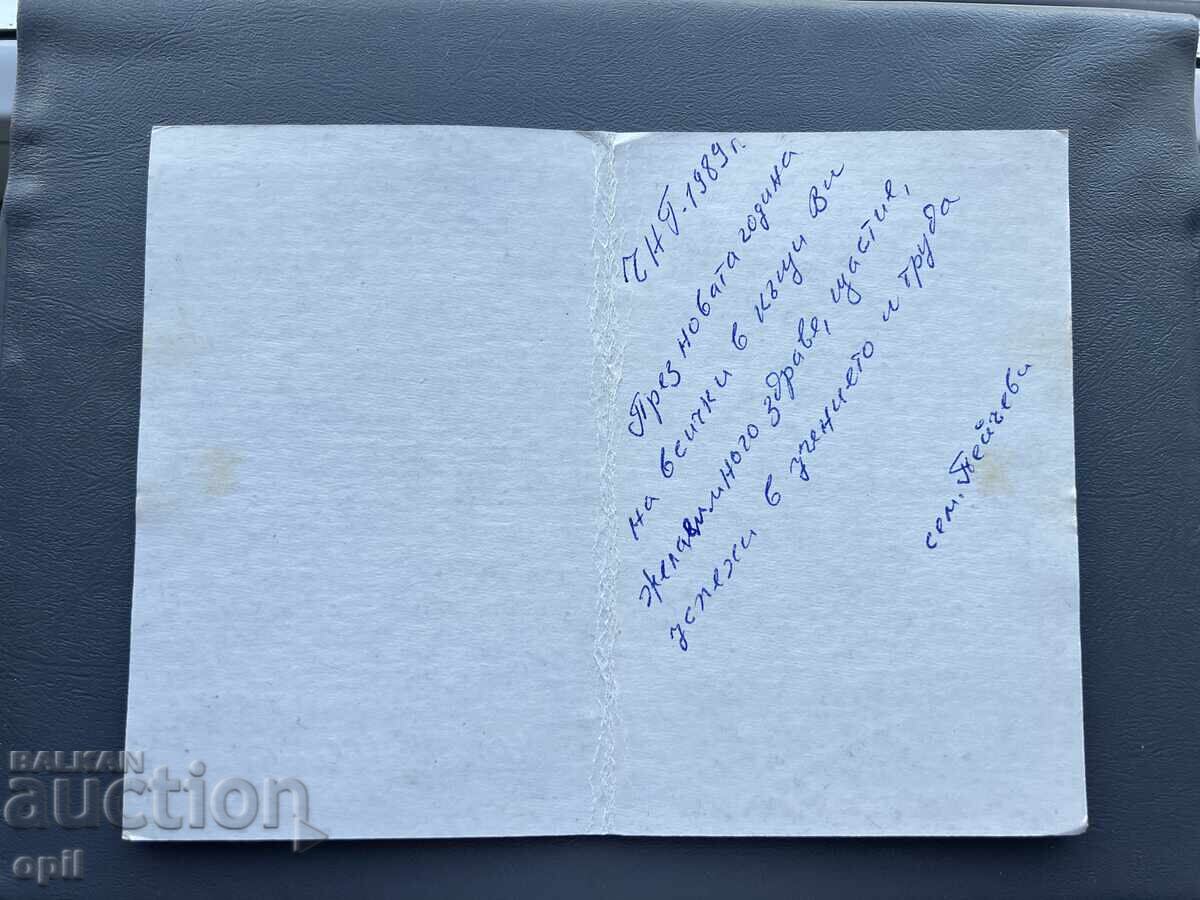 ЧНГ-1989 г.
През новата година
на всички в къщи Ви
желаем много здраве, щастие,
успехи в учението и труда
сем. Пейчеви
BALKAN
auction
opil